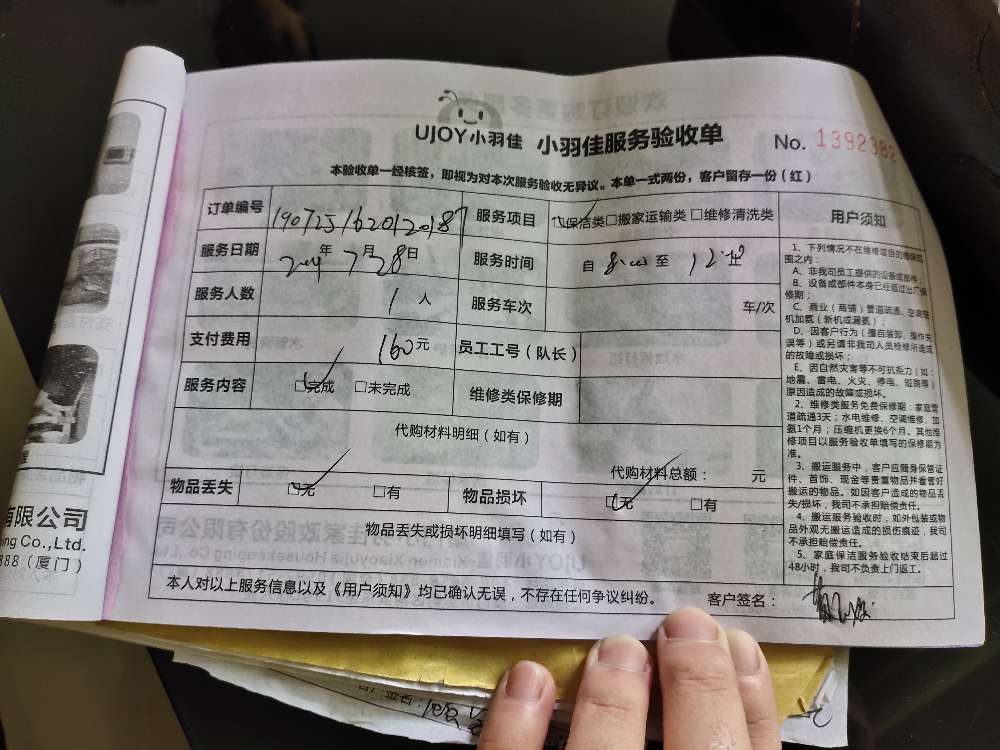 UJOY小羽佳 小羽佳服务验收单 No. 1392382
本验收单一经核签，即视为对本次服务验收无异议。本单一式两份，客户留存一份（红）
订单编号 190725162012018 服务项目 □保洁类□搬家运输类□维修清洗类 用户须知
服务日期 年7月28日 服务时间 自 8:00 至
服务人数 1人 服务车次 车/次
支付费用 160元 员工工号（队长）
服务内容 □完成 □未完成 维修类保修期
代购材料明细（如有）
代购材料总额： 元
物品丢失 □无 □有 物品损坏 □无 □有
物品丢失或损坏明细填写（如有）
本人对以上服务信息以及《用户须知》均已确认无误，不存在任何争议纠纷。 客户签名：
1、下列情况不在维修项目的维保范
围之内：
A、非我司员工提供的设备或部件；
B、设备或部件本身已经超过出厂保
修期；
C、商业（商铺）管道疏通、空调整
机加氨（新机或漏氨）；
D、因客户行为（擅自装卸、操作失
误等）或另请非我司人员检修所造成
的故障或损坏；
E、因自然灾害等不可抗拒力（如：
地震、雷电、火灾、停电、短路等）
原因造成的故障或损坏。
2、维修类服务免费保修期：家庭管
道疏通3天；水电维修、空调维修、加
氨1个月；压缩机更换6个月。其他维
修项目以服务验收单填写的保修期为
准。
3、搬运服务中，客户应随身保管证
件、首饰、现金等贵重物品并看管好
搬运的物品。如因客户造成的物品丢
失/损坏，我司不承担赔偿责任。
4、搬运服务验收时，如外包装或物
品外观无搬运造成的损伤痕迹，我司
不承担赔偿责任。
5、家庭保洁服务验收结束后超过
48小时，我司不负责上门返工。
有限公司
ing Co.,Ltd.
888（厦门）